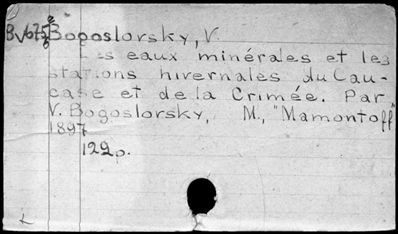 Bogoslorsky, V.
Les eaux minérales et les
stations hivernales du Cau-
case et de la Crimée. Par
V. Bogoslorsky, M., "Mamontoff"
1897
122p.